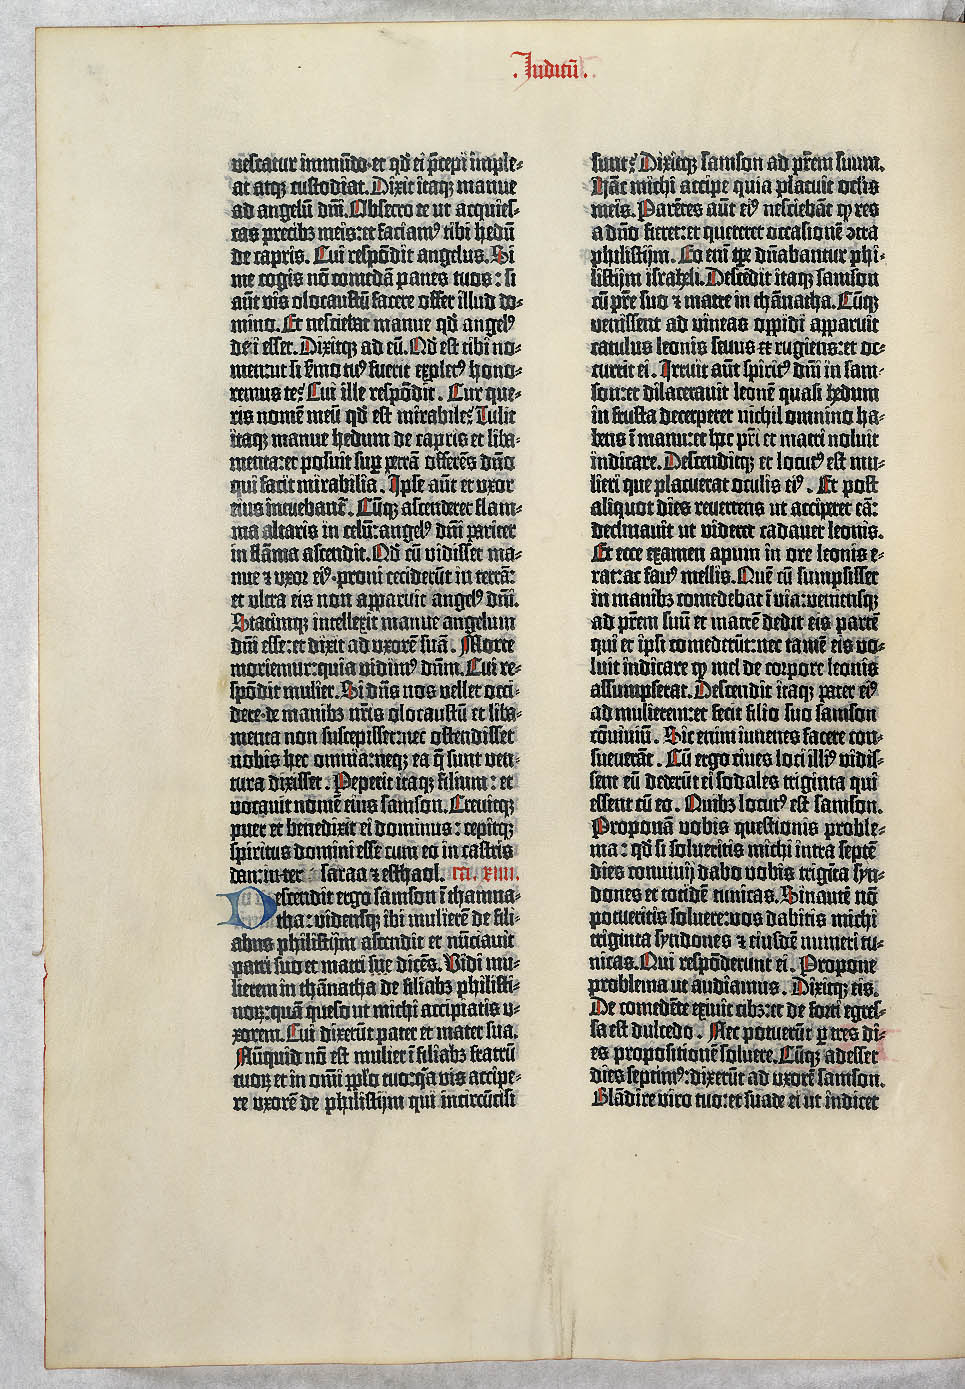 .Iudicū.
vescatur immūdo·et qđ ei p̄cepi imple-
at atqꝫ custodiat. Dixit itaqꝫ manue
ad angelū dn̄i. Obsecro te ut acquies-
cas precibꝫ meis:et faciamꝰ tibi hedū
de capris. Cui respōdit angelus. Si
me cogis nō comedā panes tuos : si
aūt vis olocaustū facere offer illud do-
mino. Et nesciebat manue qđ angelꝰ
dei esset. Dixitqꝫ ad eū. Qđ est tibi no-
men:ut si sermo tuꝰ fuerit expletꝰ hono-
remus te? Cui ille respōdit . Cur que-
ris nomē meū qđ est mirabile? Tulit
itaqꝫ manue hedum de capris et liba-
menta:et posuit sup petrā offerēs dn̄o
qui facit mirabilia. Ipse aūt et vxor
eius intuebant̄. Cūqꝫ ascenderet flam-
ma altaris in celū:angelꝰ dn̄i pariter
in flāma ascendit. Qđ cū vidisset ma-
nue ⁊ vxor eiꝰ·proni ceciderūt in terrā:
et vltra eis non apparuit angelꝰ dn̄i.
Statimqꝫ intellexit manue angelum
dn̄i esse:et dixit ad vxorē suā. Morte
moriemur:quia vidimꝰ dn̄m. Cui re-
spōdit mulier. Si dn̄s nos vellet occi-
dere·de manibꝫ nr̄is olocaustū et liba-
menta non suscepisset:nec ostendisset
nobis hec omnia:neqꝫ ea q̄ sunt ven-
tura dixisset . Peperit itaqꝫ filium : et
vocauit nomē eius samson. Creuitqꝫ
puer et benedixit ei dominus: cepitqꝫ
spiritus domini esse cum eo in castris
dan:inter saraa et esthaol. ca. xiiii.
Descendit ergo samson ī thamna-
tha: vidensqꝫ ibi mulierē de fili-
abus philistijm ascendit et nūciauit
patri suo et matri sue dicēs. Vidi mu-
lierem in thānatha de filiabꝫ philisti-
noꝝ:quā queso ut michi accipiatis v-
xorem. Cui dixerūt pater et mater sua.
Nūquid nō est mulier ī filiabꝫ fratrū
tuoꝝ et in omī pplo tuo:qa vis accipe-
re vxorē de philistijm qui incircūcisi
sunt? Dixitqꝫ samson ad prēm suum.
Hāc michi accipe quia placuit oclis
meis. Parētes aūt eiꝰ nesciebāt ꝙ res
a dn̄o fieret:et quereret occasionē ↄtra
philistijm. Eo eni tpe dn̄abantur phi-
listijm israheli. Descēdit itaqꝫ samson
cū pr̄e suo ⁊ matre in thānatha. Cūqꝫ
venissent ad vineas oppidi apparuit
catulus leonis seuus et rugiens:et oc-
currit ei . Irruit aūt spiritꝰ dn̄i in sam-
son:et dilacerauit leonē quasi hedum
in frusta decerperet nichil omnino ha-
bens ī manu:et hoc pr̄i et matri noluit
indicare. Descenditqꝫ et locutꝰ est mu-
lieri que placuerat oculis eiꝰ . Et post
aliquot dies reuertens ut acciperet eā:
declinauit ut videret cadauer leonis.
Et ecce examen apum in ore leonis e-
rat:ac fauꝰ mellis. Quē cū sumpsisset
in manibꝫ comedebat ī via:veniensqꝫ
ad prēm suū et matrē dedit eis partē
qui et ipsi comederūt:nec tamē eis vo-
luit indicare ꝙ mel de corpore leonis
assumpserat. Descendit itaqꝫ pater eiꝰ
ad mulierem:et fecit filio suo samson
cōuiuiū . Sic enim iuuenes facere con-
sueuerāt . Cū ergo ciues loci illiꝰ vidis-
sent eū dederūt ei sodales triginta qui
essent cū eo. Quibꝫ locutꝰ est samson.
Proponā vobis questionis proble-
ma: qđ si solueritis michi intra septē
dies conuiuij dabo vobis trigīta syn-
dones et totidē tunicas. Sinautē nō
potueritis soluere:vos dabitis michi
triginta syndones ⁊ eiusdē numeri tu-
nicas. Qui respōderunt ei . Propone
problema ut audiamus. Dixitqꝫ eis.
De comedēte exiuit cibꝫ:et de forti egres-
sa est dulcedo . Nec potuerūt p tres di-
es propositionē soluere. Cūqꝫ adesset
dies septimꝰ:dixerūt ad vxorē samson.
Blādire viro tuo:et suade ei ut indicet